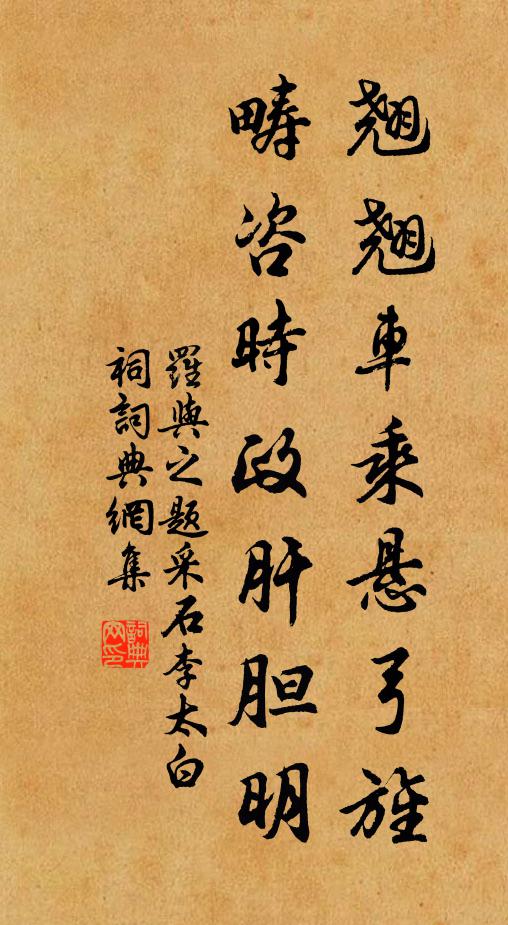 翹翹車乘悬弓旌
畴咨時政肝胆明
羅與之題采石李太白
祠詞典網集
詞典
网印